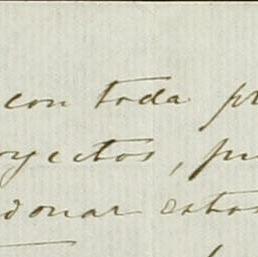 con toda pr
oyectos, pu
donar estos